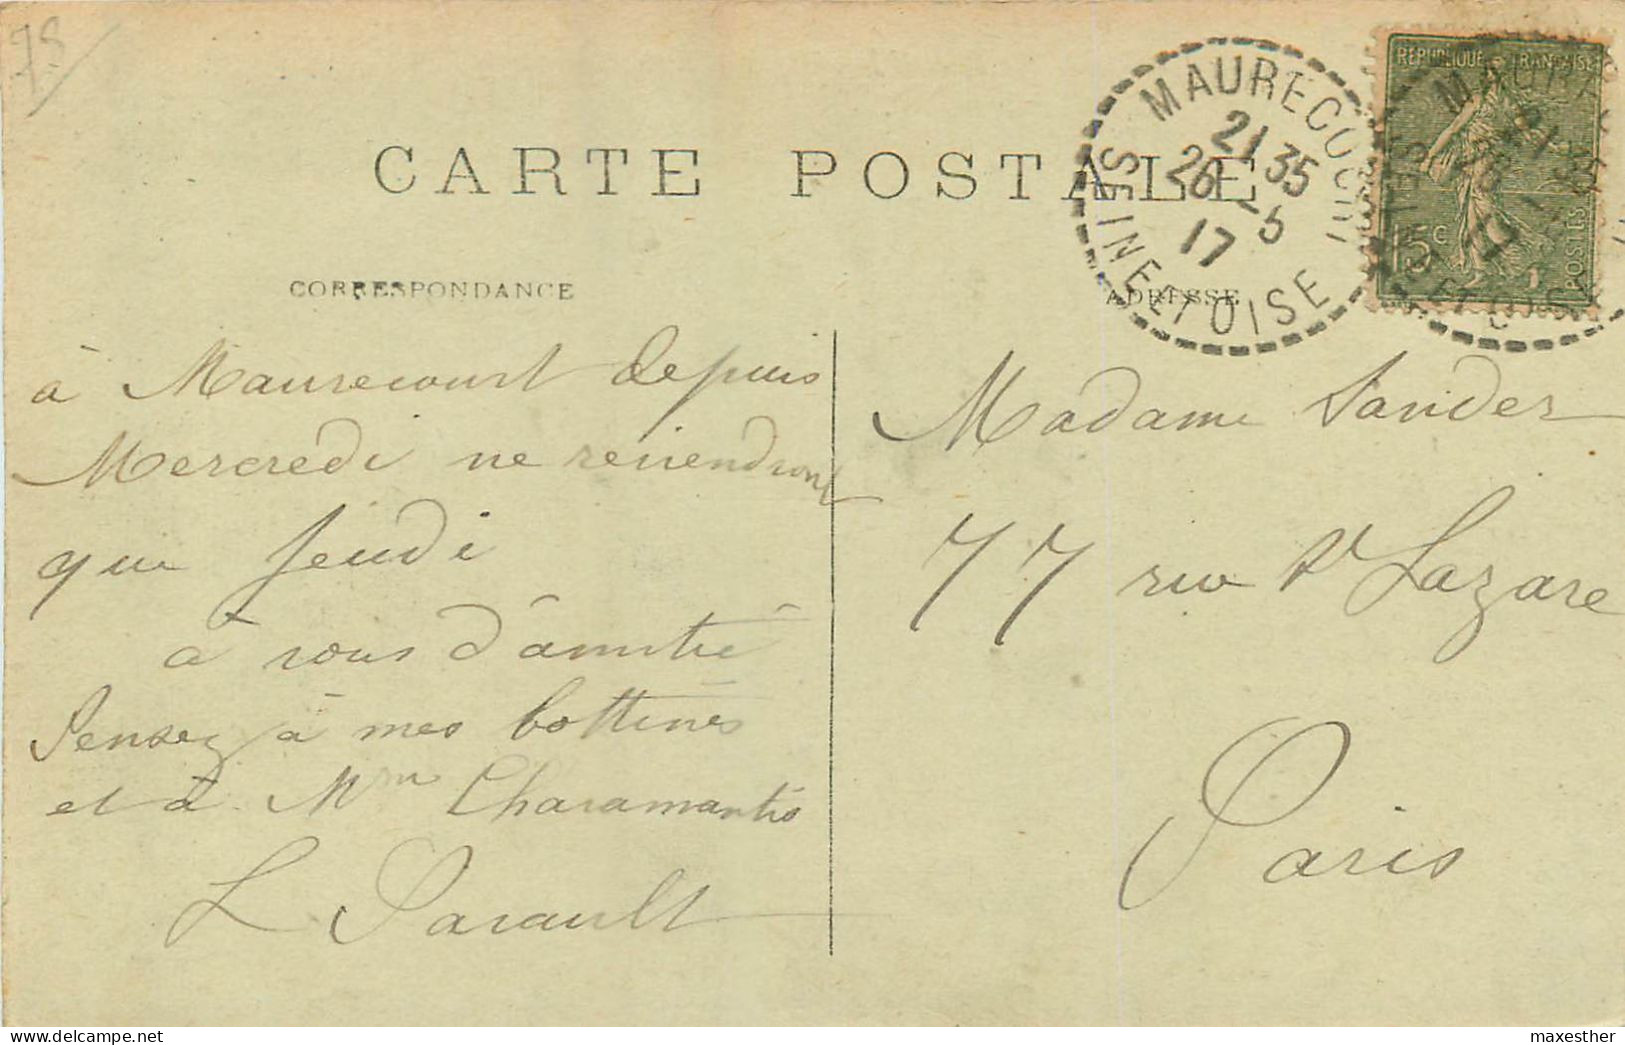 78
CARTE POSTALE
CORRESPONDANCE
ADRESSE
MAURECOURT
21 35
26 - 5
17
SEINE ET OISE
REPUBLIQUE FRANÇAISE
15c
POSTES
à Maurecourt depuis
Mercredi ne reviendront
que Jeudi
à vous d'amitié
Pensez à mes bottines
et à Mme Charamantis
L Parault
Madame Sander
77 rue St Lazare
Paris
delcampe.net
maxesther